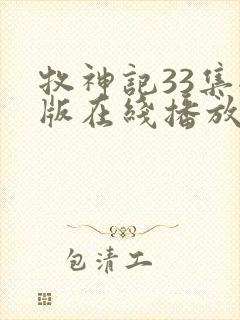 牧神記33集
版在綫播放
包清工